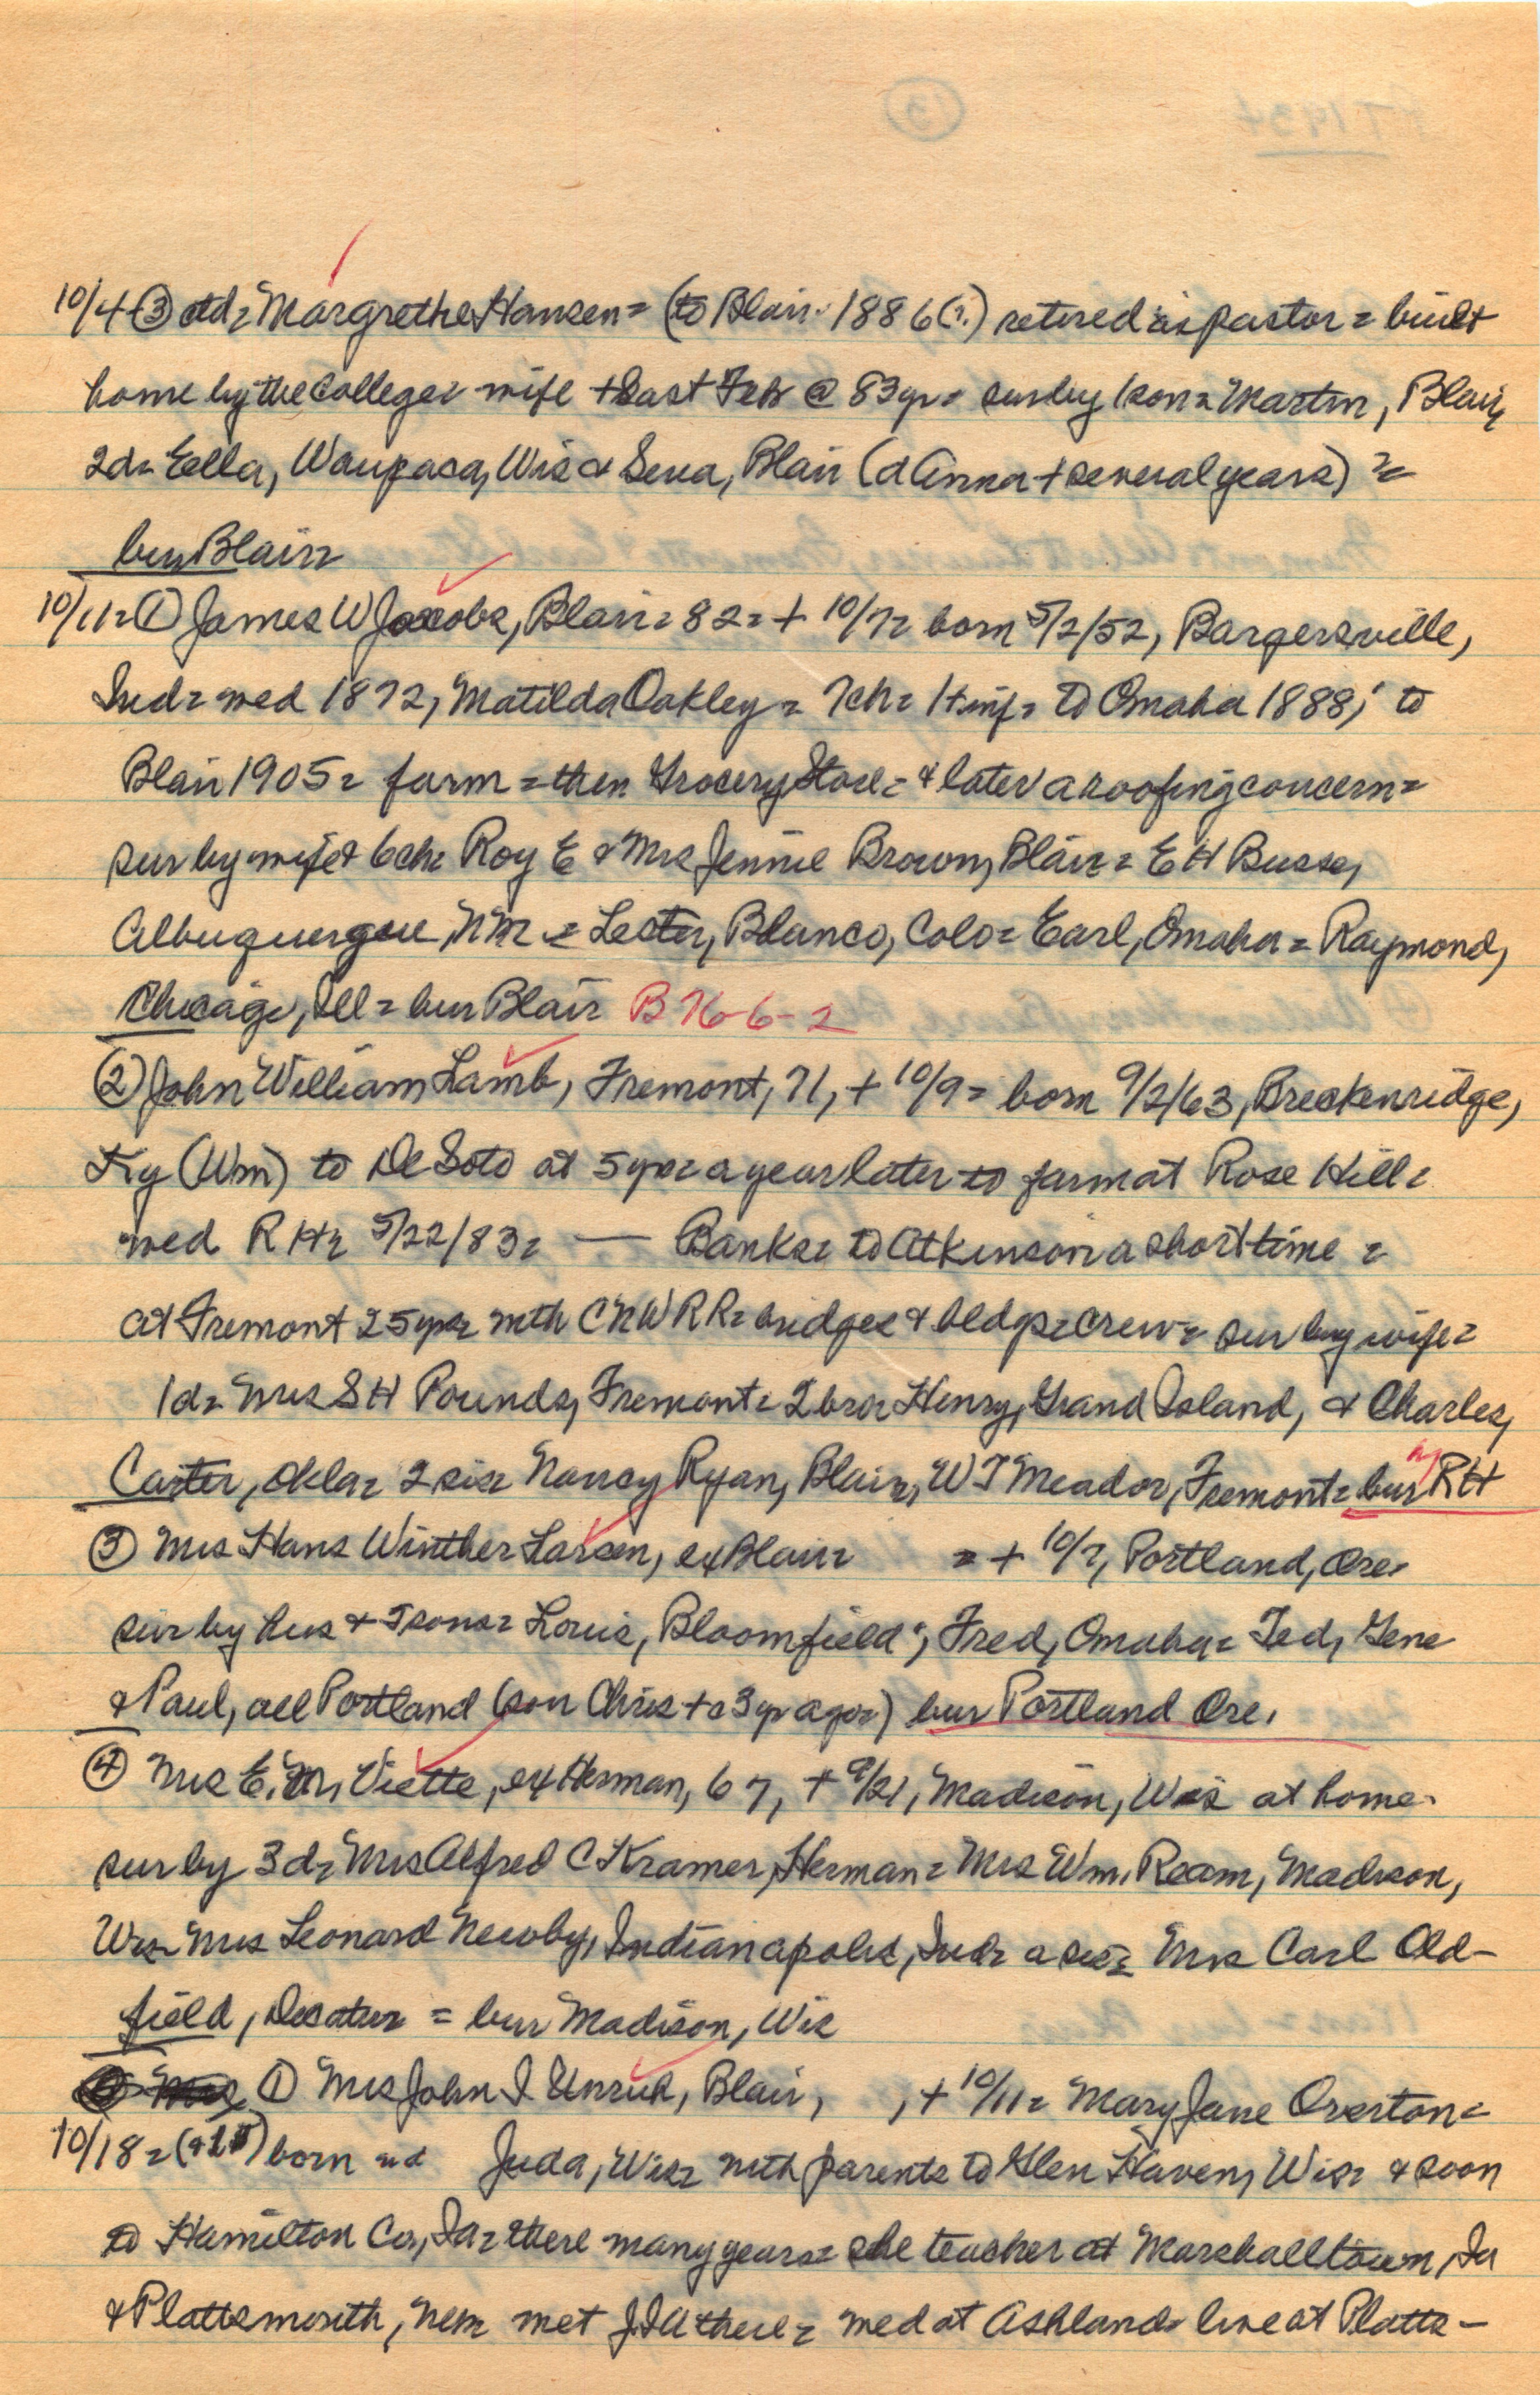 10/4 ③ ctd = Margrethe Hansen = (to Blair 1886(?) retired as pastor = built
home by the College = wife + last Feb @ 83yr = sur by 1 son = Martin, Blair,
2d = Ella, Waupaca, Wis & Sena, Blair (d Anna + several years) =
bur Blair =
10/11 = ① James W Jacobs, Blair = 82 = + 10/7 = born 5/2/52, Bargersville,
Ind = wed 1872, Matilda Oakley = 7ch = 1 + inf = to Omaha 1888; to
Blair 1905 = farm = then Grocery Store = & later a roofing concern =
sur by wife & 6ch = Roy E & Mrs Jennie Brown, Blair = E H Busse,
Albuquerque, NM = Lester, Blanco, Colo = Earl, Omaha = Raymond,
Chicago, Ill = bur Blair B 76-6-2
② John William Lamb, Fremont, 71, + 10/9 = born 9/2/63, Breckenridge,
Ky (Wm) to De Soto at 5yr = a year later to farm at Rose Hill =
wed RH = 5/22/83 = — Banks = to Atkinson a short time =
at Fremont 25yr = with CNW RR = bridges & bldgs = crew = sur by wife =
1d = Mrs S H Pounds, Fremont = 2 bro = Henry, Grand Island, & Charles,
Carter, Okla = 2 sis = Nancy Ryan, Blair, W T Meador, Fremont = bur RH
③ Mrs Hans Winther Larsen, ex Blair = + 10/7, Portland, Ore =
sur by hus & 5 sons = Louis, Bloomfield; Fred, Omaha = Ted, Gene
& Paul, all Portland (son Chris + 3yr ago =) bur Portland Ore.
④ Mrs E. M. Viette, ex Herman, 67, + 9/21, Madison, Wis at home =
sur by 3d = Mrs Alfred C Kramer, Herman = Mrs Wm. Ream, Madison,
Wis = Mrs Leonard Newby, Indianapolis, Ind = a sis = Mrs Carl Old-
field, Decatur = bur Madison, Wis
① Mrs John I Unruh, Blair, , + 10/11 = Mary Jane Overton =
10/18 = born Juda, Wis = with parents to Glen Haven, Wis = & soon
to Hamilton Co, Ia = there many years = she teacher at Marshalltown, Ia
& Plattsmouth, met J I U there = wed at Ashland = live at Platts-